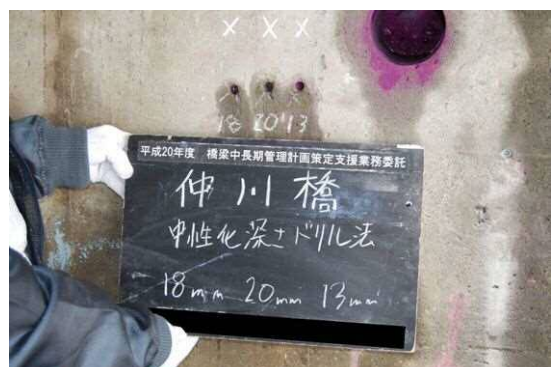 × × ×
18 20 13
平成20年度 橋梁中長期管理計画策定支援業務委託
仲川橋
中性化深さドリル法
18mm 20mm 13mm